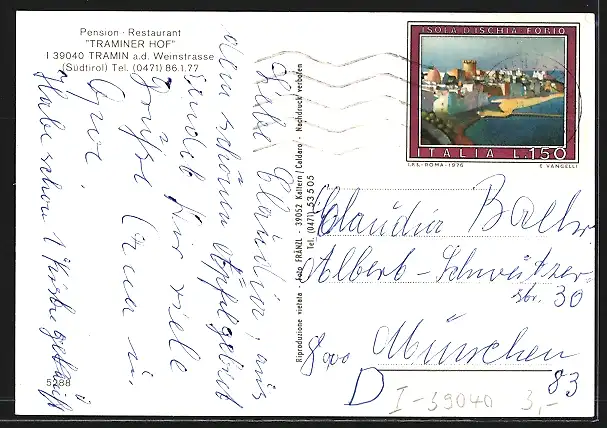 Pension · Restaurant
"TRAMINER HOF"
I 39040 TRAMIN a.d. Weinstrasse
(Südtirol) Tel. (0471) 86.1.77
Liebe Claudia, aus
dem schönen Apfelgebiet
sendet Dir viele
Grüße
Habe schon 1 Kiste gekauft
5288
Riproduzione vietata · Foto FRÄNZL · 39052 Kaltern/Caldaro · Nachdruck verboten
Tel. (0471) 53505
ISOLA D'ISCHIA-FORIO
ITALIA L.150
I.P.S.-ROMA-1976 E VANGELLI
Claudia
Albert-Schweitzer-
str. 30
8000 München
83
D
I-39040 3,-